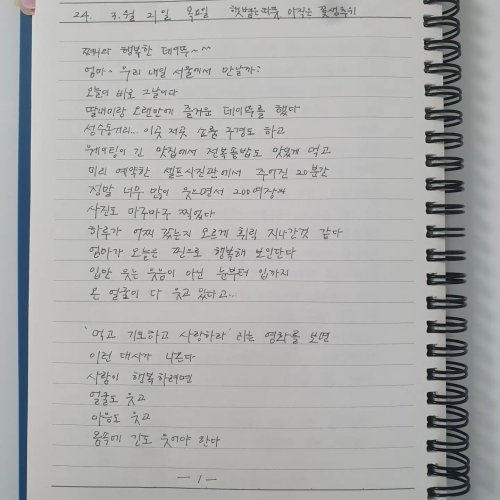 24. 3.월 21일 목요일 햇볕은 따뜻, 아직은 꽃샘추위
쩌니와 행복한 데이뚜~~
엄마~ 우리 내일 서울에서 만날까?
오늘이 바로 그날이다
딸내미랑 오랜만에 즐거운 데이뚜를 했다
성수동거리... 이곳 저곳 쇼룸 구경도 하고
웨이팅이 긴 맛집에서 전복솥밥도 맛있게 먹고
미리 예약한 셀프사진관에서 주어진 20분간
정말 너무 많이 웃으면서 200여장의
사진도 마구마구 찍었다
하루가 어찌 갔는지 모르게 휘릭 지나간것 같다
엄마가 오늘은 찐으로 행복해 보인단다
입만 웃는 웃음이 아닌 눈부터 입까지
온 얼굴이 다 웃고 있다고...
'먹고 기도하고 사랑하라' 라는 영화를 보면
이런 대사가 나온다
사람이 행복하려면
얼굴도 웃고
마음도 웃고
몸속에 간도 웃어야 한다
— 1 —